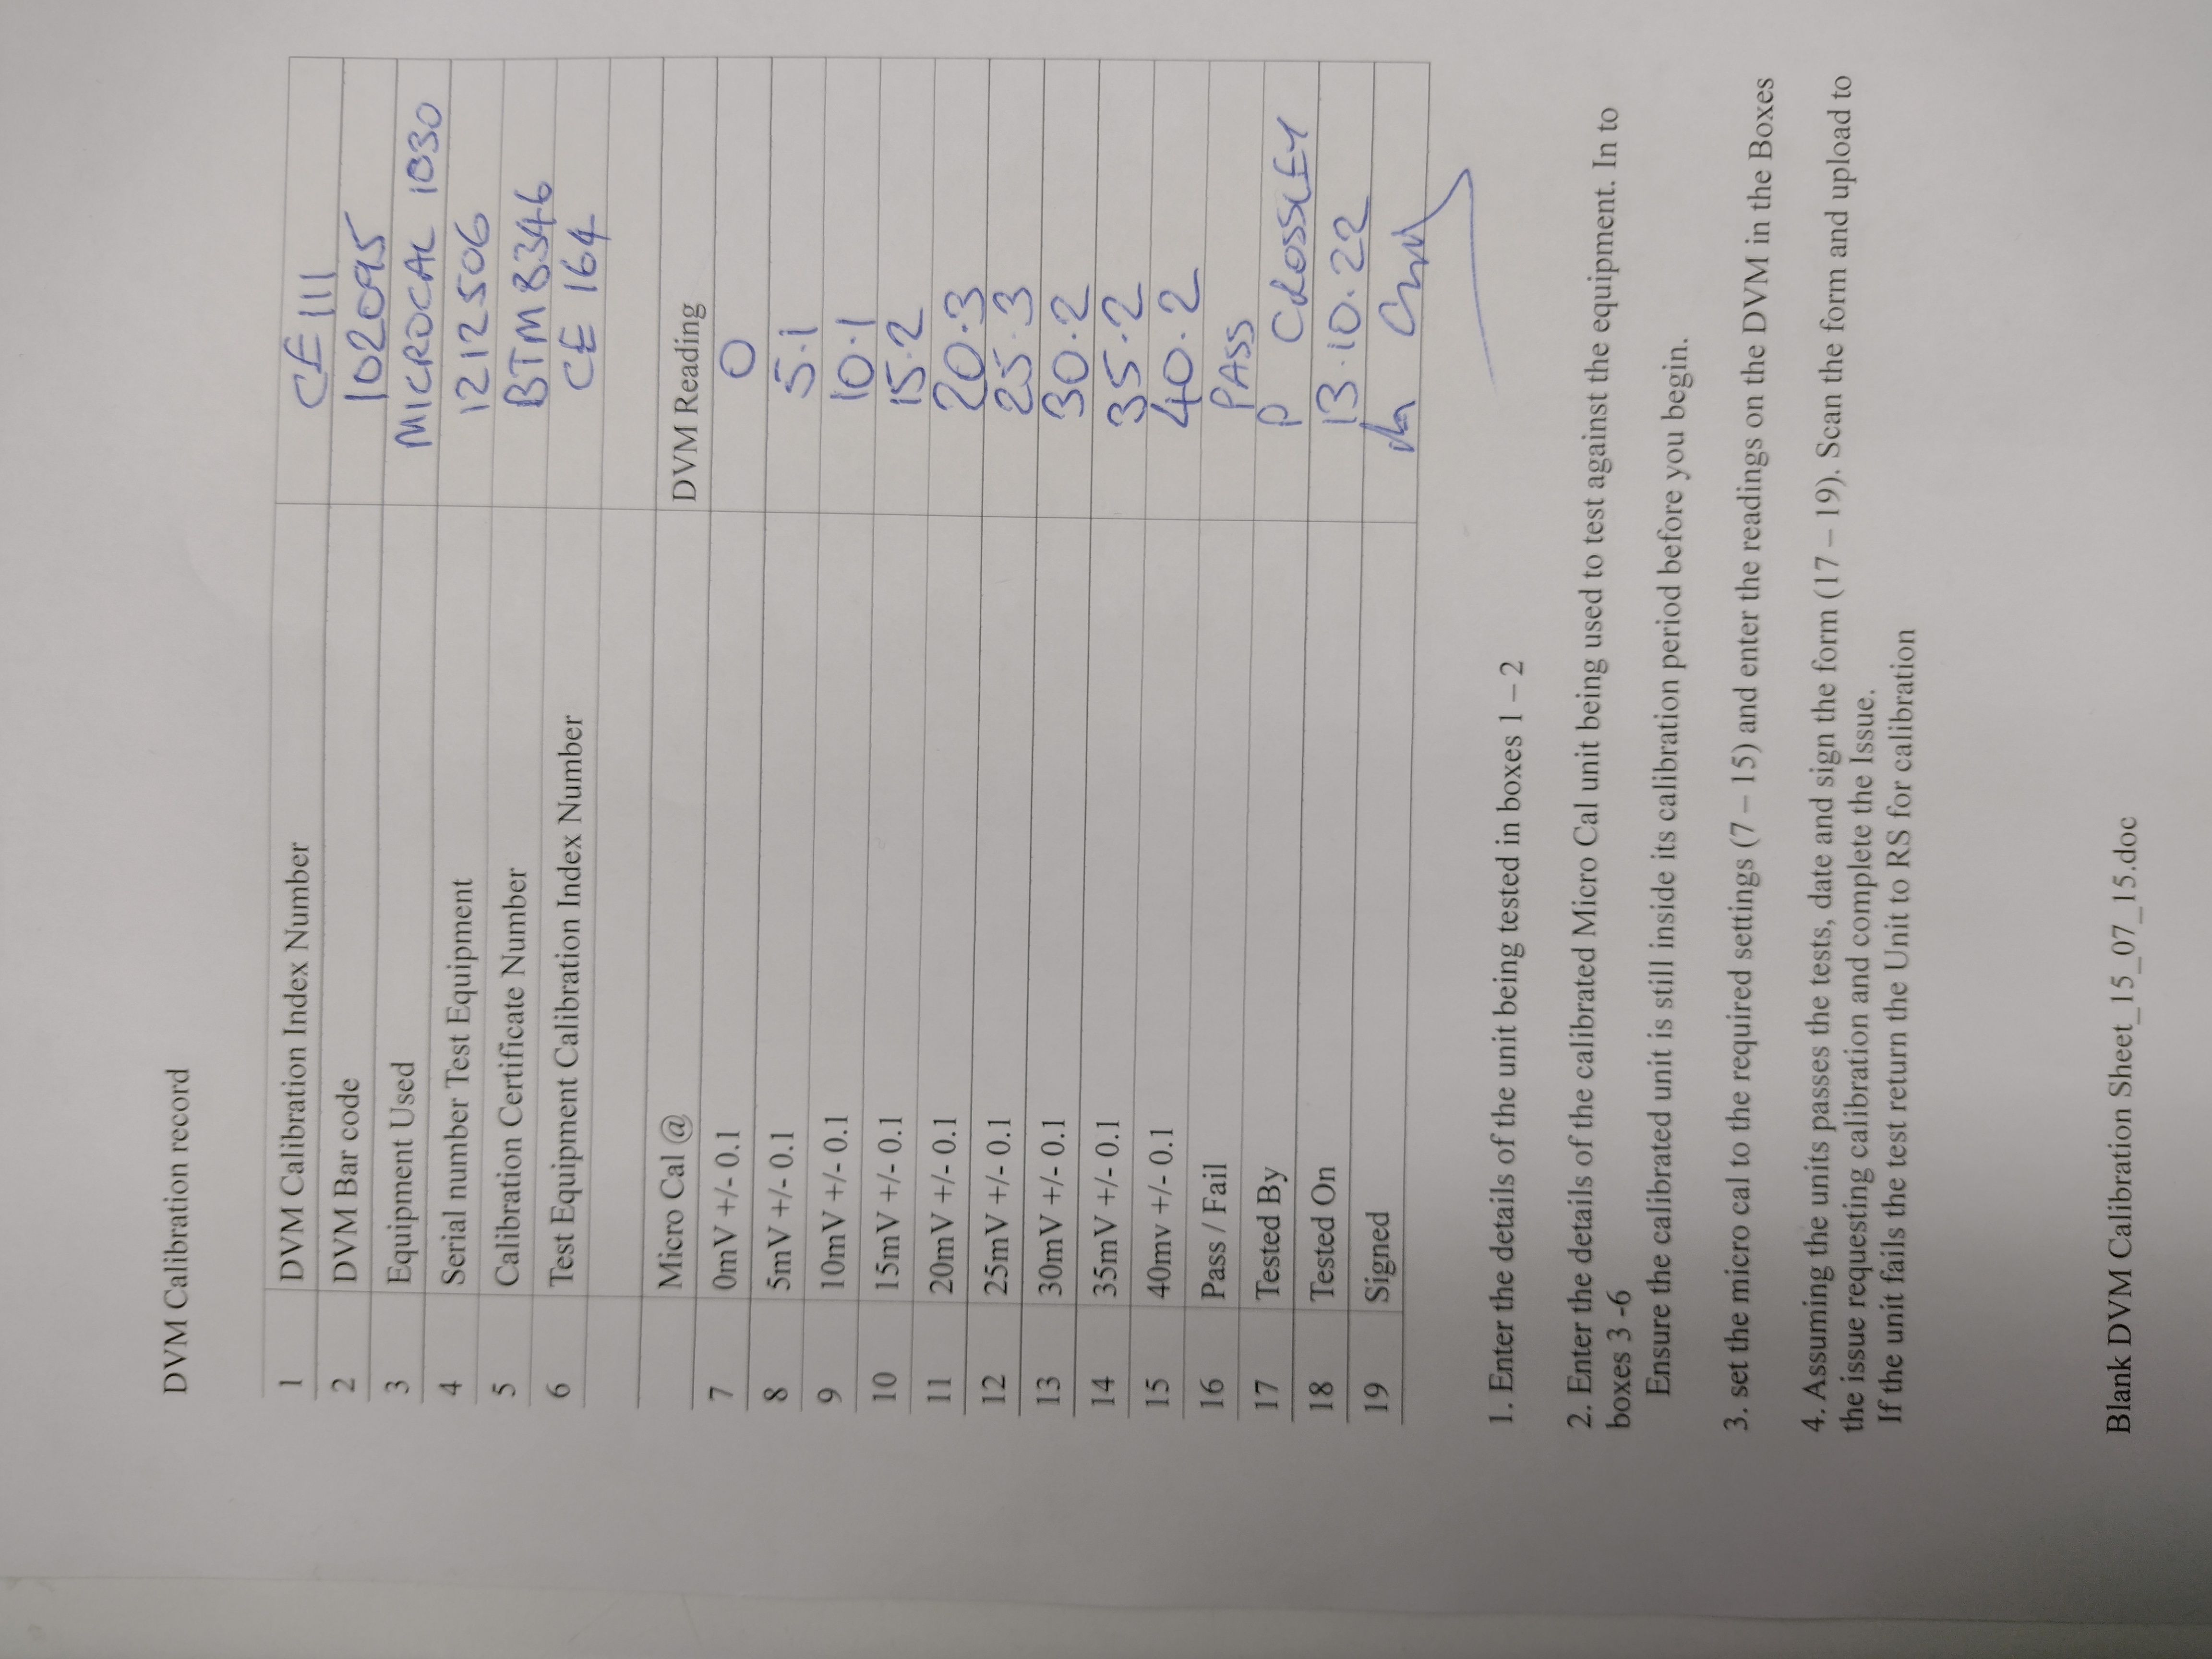 DVM Calibration record
1 DVM Calibration Index Number CE 111
2 DVM Bar code 102095
3 Equipment Used MICROCAL 1030
4 Serial number Test Equipment 1212506
5 Calibration Certificate Number BTM 8346
6 Test Equipment Calibration Index Number CE 164
Micro Cal @ DVM Reading
7 0mV +/- 0.1 0
8 5mV +/- 0.1 5.1
9 10mV +/- 0.1 10.1
10 15mV +/- 0.1 15.2
11 20mV +/- 0.1 20.3
12 25mV +/- 0.1 25.3
13 30mV +/- 0.1 30.2
14 35mV +/- 0.1 35.2
15 40mv +/- 0.1 40.2
16 Pass / Fail PASS
17 Tested By P CROSSLEY
18 Tested On 13.10.22
19 Signed
1. Enter the details of the unit being tested in boxes 1 – 2
2. Enter the details of the calibrated Micro Cal unit being used to test against the equipment. In to
boxes 3 -6
Ensure the calibrated unit is still inside its calibration period before you begin.
3. set the micro cal to the required settings (7 – 15) and enter the readings on the DVM in the Boxes
4. Assuming the units passes the tests, date and sign the form (17 – 19). Scan the form and upload to
the issue requesting calibration and complete the Issue.
If the unit fails the test return the Unit to RS for calibration
Blank DVM Calibration Sheet_15_07_15.doc